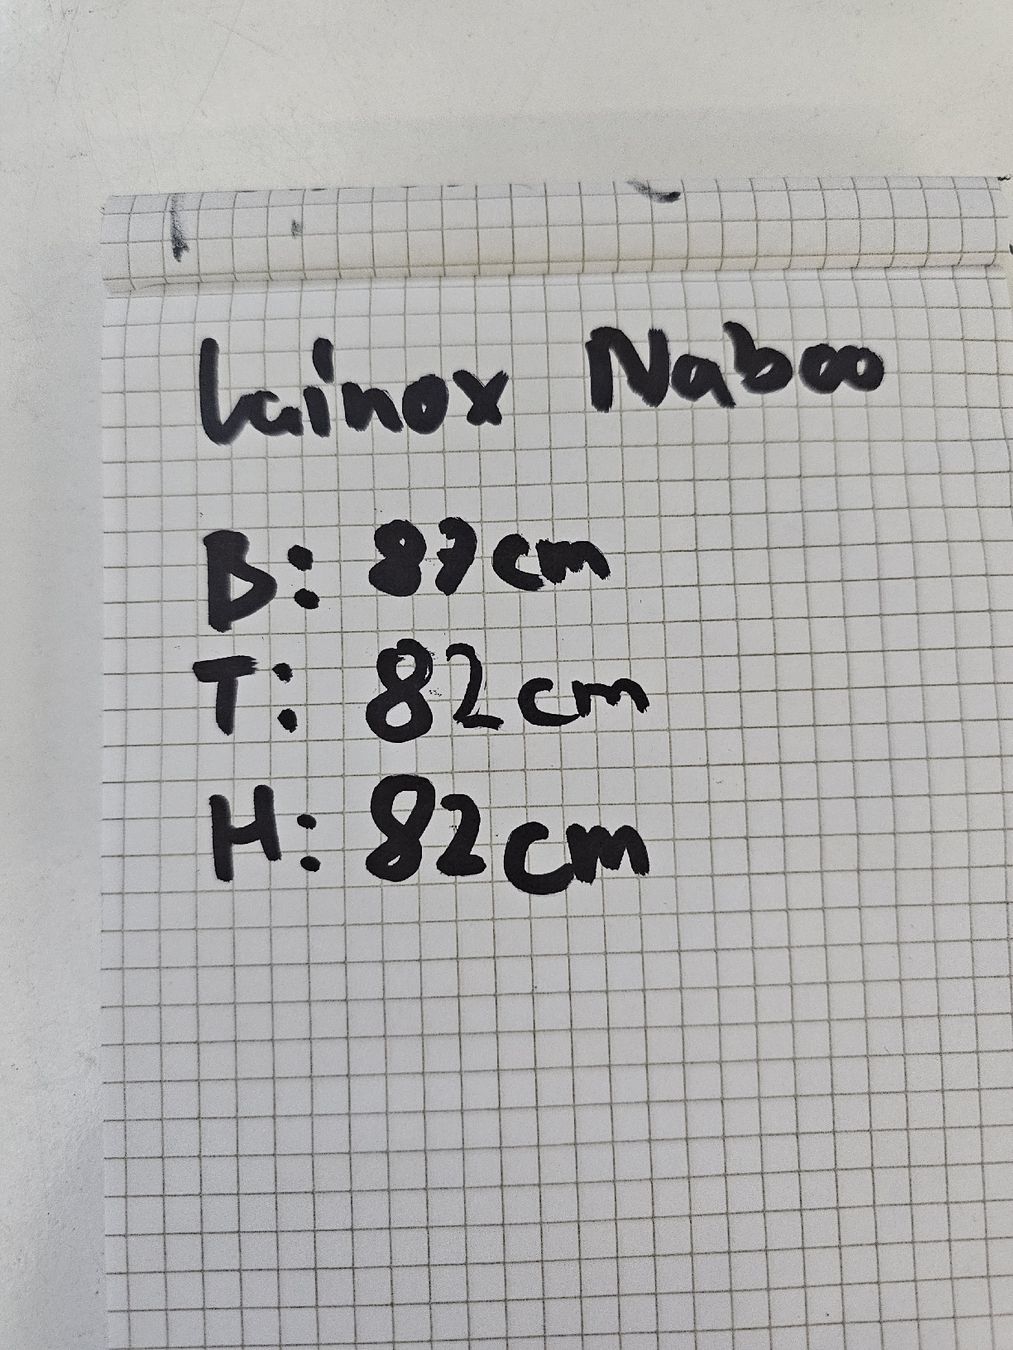 Lainox Naboo
B: 87cm
T: 82cm
H: 82cm